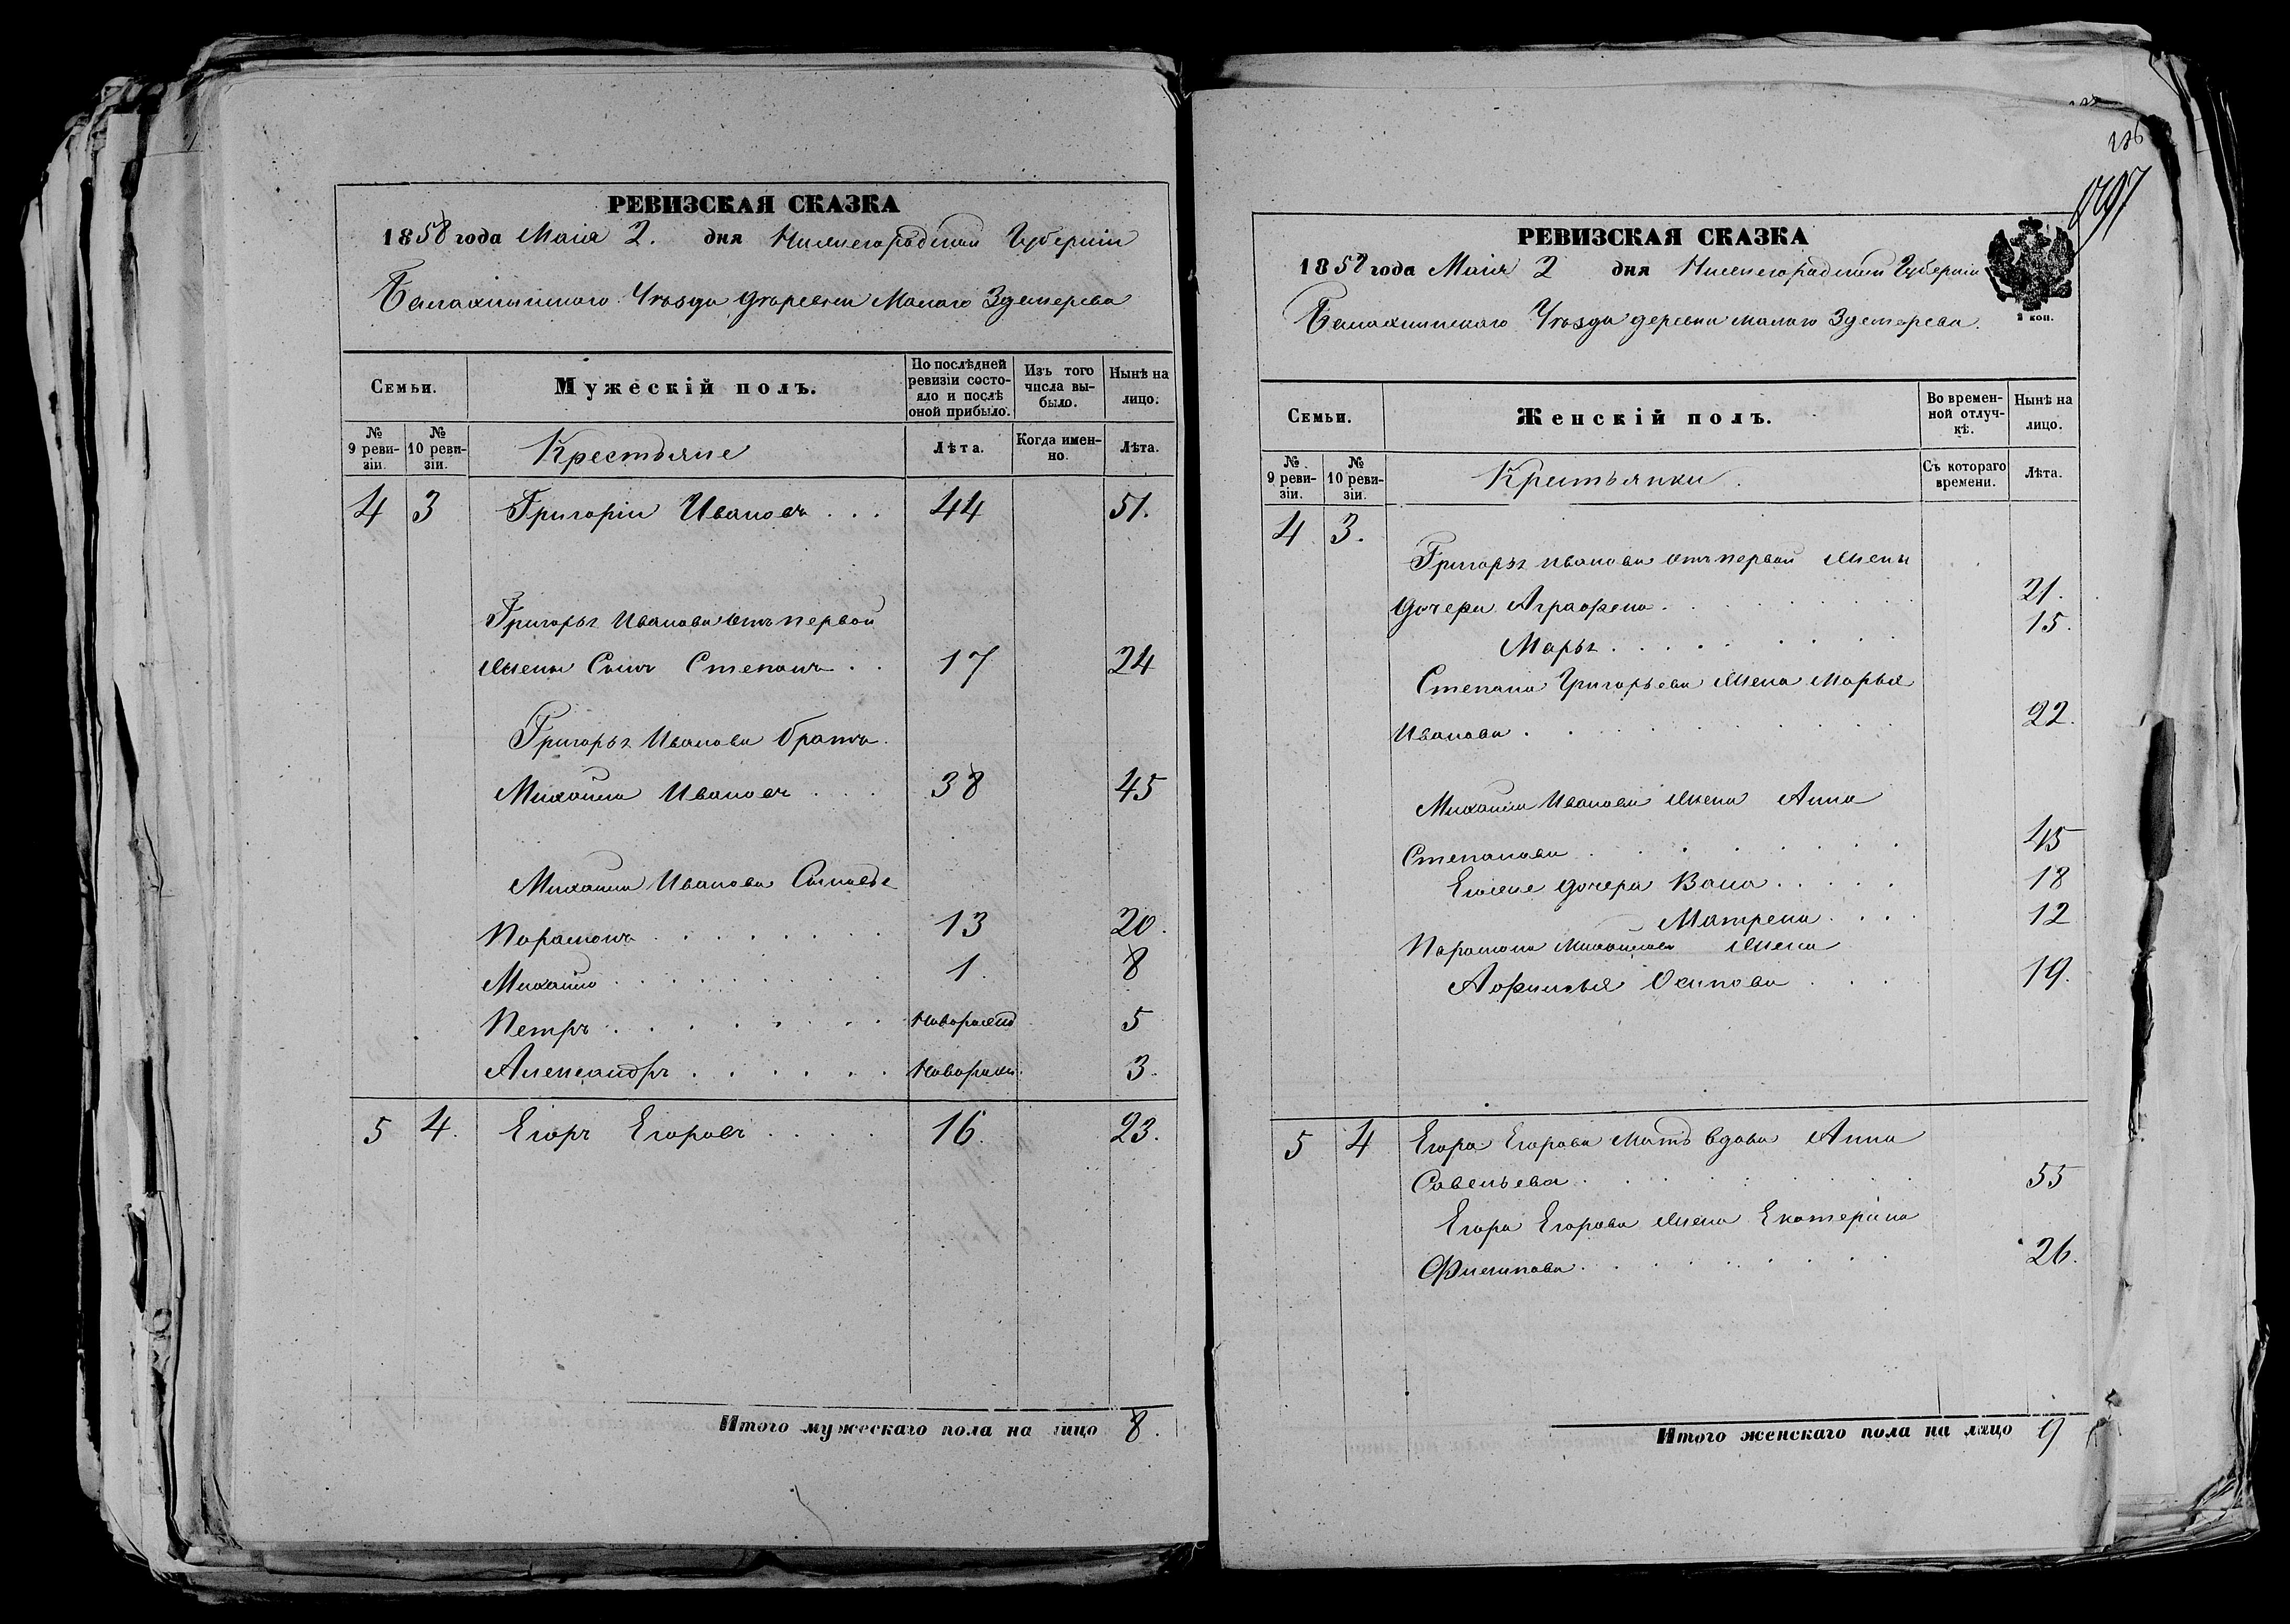 РЕВИЗСКАЯ СКАЗКА
1858 года Маія 2. дня Нижегородской Губерніи
Балахнинскаго Уѣзда деревни Малаго
Семьи.
Мужескій полъ.
По послѣдней ревизіи состо-
яло и послѣ
оной прибыло.
Изъ того
числа вы-
было.
Нынѣ на
лицо.
№
9 реви-
зіи.
№
10 реви-
зіи.
Крестьяне
Лѣта.
Когда имен-
но.
Лѣта.
4 3 Григорій Ивановъ . . . 44 51.
Григорья Иванова отъ первой
жены Сынъ Степанъ . . 17 24
Григорья Иванова братъ.
Михайла Ивановъ . . . 38 45
Михайла Иванова Сыновья
Парамонъ . . . . . . . 13 20.
Михайло . . . . . . . . 1. 8
Петръ . . . . . . . . Новорожд 5
Александръ . . . . . . Новорожд. 3.
5 4. Егоръ Егоровъ . . . . 16. 23.
Итого мужескаго пола на лицо 8.
1797
РЕВИЗСКАЯ СКАЗКА
1858 года Маія 2 дня Нижегородской Губерніи
Балахнинскаго Уѣзда деревни малаго
2 коп.
Семьи.
Женскій полъ.
Во времен-
ной отлуч-
кѣ.
Нынѣ на
лицо.
№
9 реви-
зіи.
№
10 реви-
зіи.
Крестьянки.
Съ котораго
времени.
Лѣта.
4 3.
Григорья Иванова отъ первой жены
дочери Аграфена . . . . . . . 21.
Марья . . . . . . . 15.
Степана Григорьева жена Марья
Иванова . . . . . . . . 22.
Михайла Иванова жена Анна
Степанова . . . . . . . . 45
Егожие дочери Васа . . . . . 18
Матрена . . . . 12
Парамона Михайлова жена
Афимья Осипова . . . . 19.
5 4 Егора Егорова мать вдова Анна
Савельева . . . . . . . . 55
Егора Егорова жена Екатерина
Филипова . . . . . . . . 26.
Итого женскаго пола на лицо 9